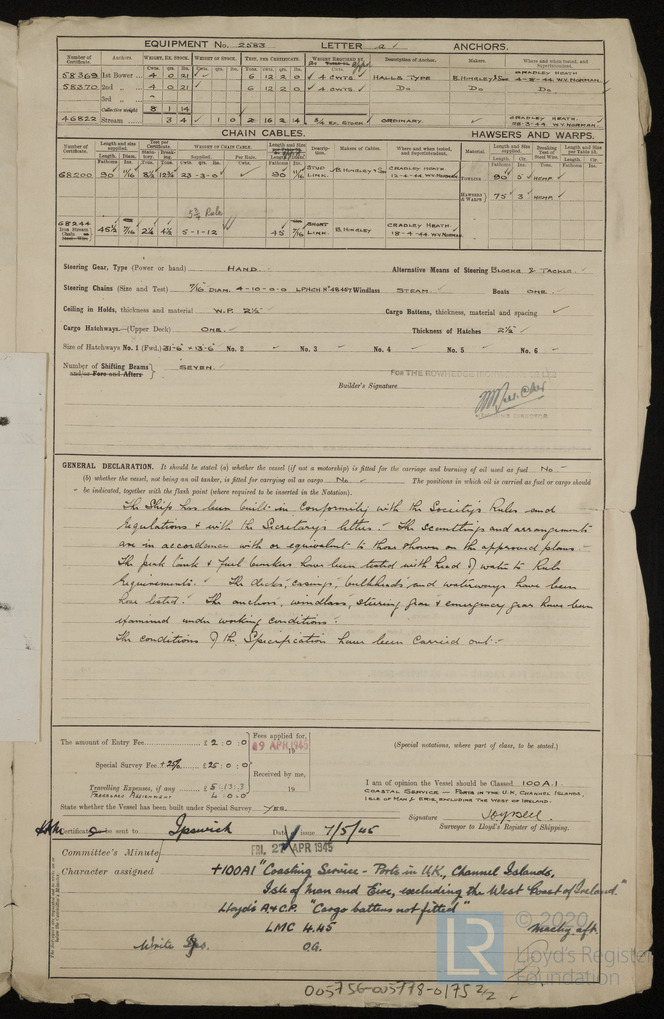 EQUIPMENT No. 2583 LETTER a 1 ANCHORS.
Number of Certificate. Anchors. WEIGHT, EX. STOCK. WEIGHT OF STOCK. TEST, PER CERTIFICATE. WEIGHT REQUIRED Description of Anchor. Makers. Where and when tested, and Superintendent.
Cwts. qrs. lbs. Cwts. qrs. lbs. Tons. cwts. qrs. lbs. Cwts.
58369 1st Bower 4 0 21 ✓ 6 12 2 0 ✓ 4 CWTS ✓ HALLS TYPE B. HINGLEY & SONS CRADLEY HEATH 4-8-44. W.V. NORMAN.
58370 2nd „ 4 0 21 ✓ 6 12 2 0 ✓ 4 CWTS ✓ Do Do Do
3rd „
Collective weight 8 1 14
46822 Stream 3 4 ✓ 1 0 ✓ 2 16 2 14 ✓ 3/4 EX. STOCK ✓ ORDINARY. ✓ CRADLEY HEATH W.V. NORMAN
CHAIN CABLES. HAWSERS AND WARPS.
Number of Certificate. Length and size supplied. Test per Certificate. WEIGHT OF CHAIN CABLE. Length and Size Description. Makers of Cables. Where and when tested, and Superintendent. Material. Length and Size supplied. Breaking Test of Steel Wire. Length and Size per Table 53.
Length. Diam. Statutory. Breaking. Supplied. Per Rule. Length. Diam. Length. Cir. Length. Cir.
68200 90 11/16 8½ 12¾ 23-3-0 ✓ 90 11/16 STUD LINK. B. HINGLEY & SONS CRADLEY HEATH 12-4-44. W.V. NORMAN TOWLINE 90 5 HEMP.
HAWSERS & WARPS 75 3 HEMP.
5¾ Rule
68244
Iron Stream Chain 45½ 7/16 2¼ 4½ 5-1-12 45 7/16 SHORT LINK. B. HINGLEY CRADLEY HEATH 18-4-44. W.V. NORMAN
Steering Gear, Type (Power or hand) HAND. Alternative Means of Steering BLOCKS & TACKLE.
Steering Chains (Size and Test) 7/16 DIAM. 4-10-0-0 LPHCH No 48457 Windlass STEAM. Boats ONE.
Ceiling in Holds, thickness and material W.P. 2½" Cargo Battens, thickness, material and spacing
Cargo Hatchways.—(Upper Deck) ONE. Thickness of Hatches 2½"
Size of Hatchways No. 1 (Fwd.) 31-6 × 13-6 No. 2 No. 3 No. 4 No. 5 No. 6
Number of Shifting Beams and/or Fore and Afters } SEVEN.
FOR THE ROWHEDGE IRONWORKS
Builder's Signature
GENERAL DECLARATION. It should be stated (a) whether the vessel (if not a motorship) is fitted for the carriage and burning of oil used as fuel No
(b) whether the vessel, not being an oil tanker, is fitted for carrying oil as cargo No The positions in which oil is carried as fuel or cargo should
be indicated, together with the flash point (where required to be inserted in the Notation).
The Ship has been built in conformity with the Society's Rules and
Regulations & with the Secretary's letters. The scantlings and arrangements
are in accordance with or equivalent to those shown on the approved plans.
The peak tanks & fuel bunkers have been tested with head of water to Rule
Requirements. The decks, casings, bulkheads and waterways have been
hose tested. The anchors, windlass, steering gear & emergency gear have been
examined under working conditions.
The conditions of the Specification have been carried out.
The amount of Entry Fee £ 2 : 0 : 0 Fees applied for, 19 APR 1945
Special Survey Fee +25% £ 25 : 0 : 0 (Special notations, where part of class, to be stated.)
Received by me,
Travelling Expenses, if any £ 5 : 13 : 3 19
FREEBOARD ASSIGNMENT 4 : 0 : 0
I am of opinion the Vessel should be Classed 100 A.1.
COASTAL SERVICE - PORTS IN THE U.K., CHANNEL ISLANDS,
ISLE OF MAN & EIRE, EXCLUDING THE WEST OF IRELAND.
State whether the Vessel has been built under Special Survey YES.
Signature
Surveyor to Lloyd's Register of Shipping.
Certificate to be sent to Ipswich Date of issue 7/5/45
Committee's Minute FRI. 27 APR 1945
Character assigned +100A1 "Coasting Service - Ports in U.K., Channel Islands,
Isle of Man and Eire, excluding the West Coast of Ireland"
Lloyd's A & C.P. "Cargo battens not fitted"
LMC 4.45 Machy aft.
Write Ips. O.G.
LR © 2020 Lloyd's Register Foundation
005756-005778-0175 2/2